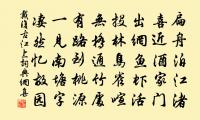 扁舟泊江渚
喜近酒家門
出網魚虾活
投林鳥雀喧
無橋通竹處
有路到桃源
一見南塘字
凄然憶故園
戴復古江上詞典網